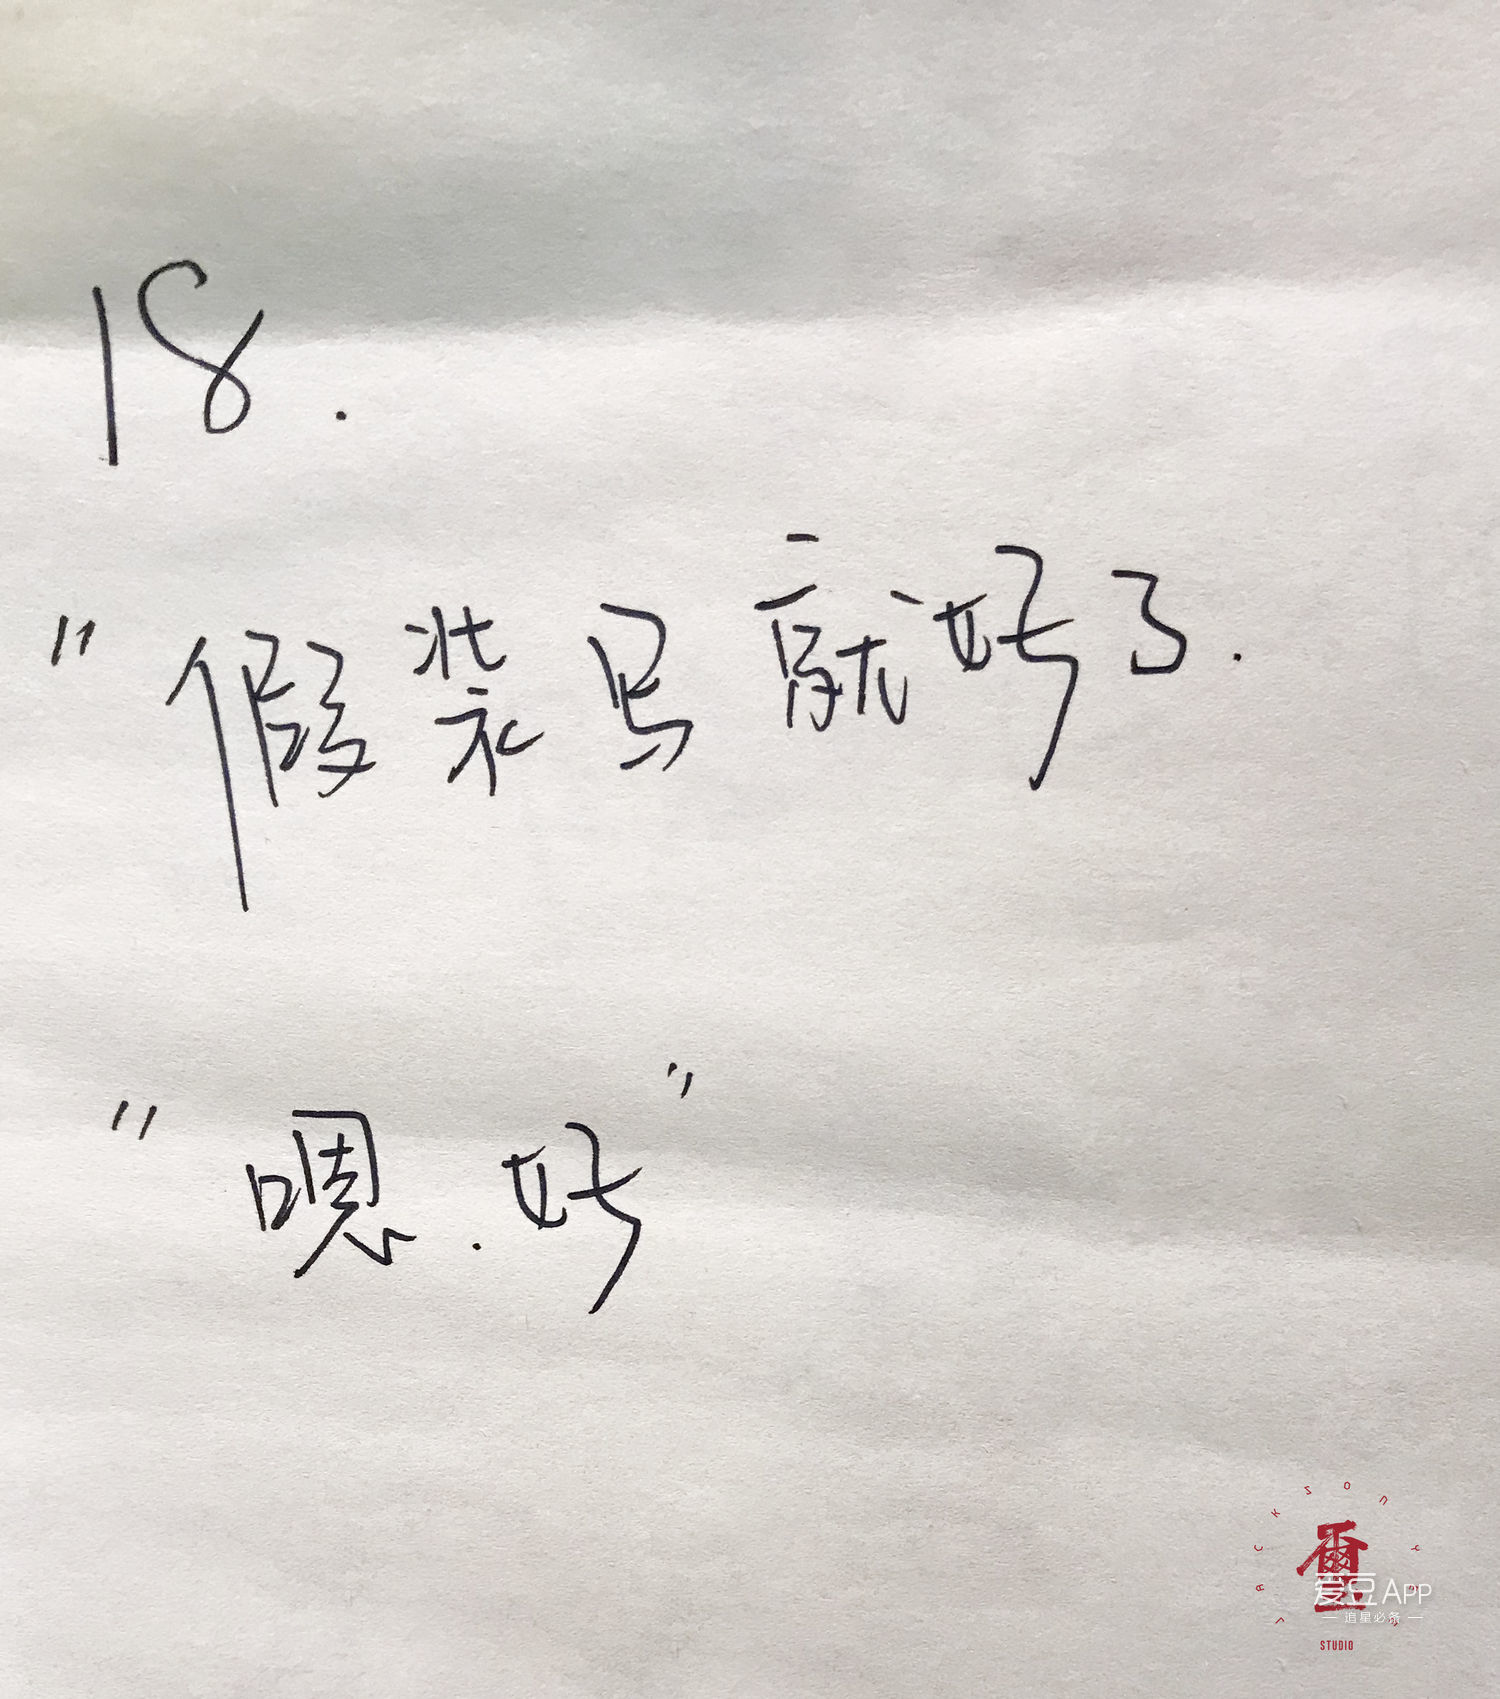 18.
"假装写就好了.
"嗯.好"
JACKSON YI
璽
爱豆APP
— 追星必备 —
STUDIO